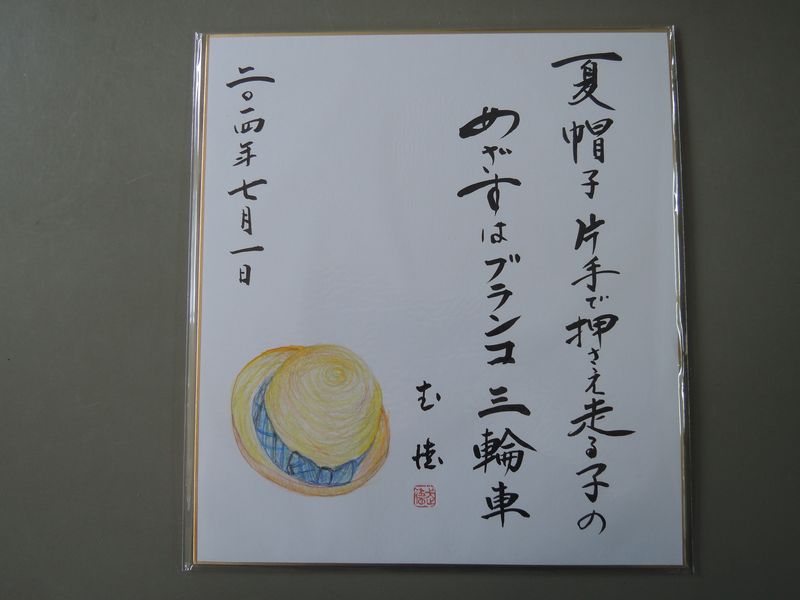 夏帽子片手で押さえ走る子の
めざすはブランコ三輪車
二〇一四年七月一日